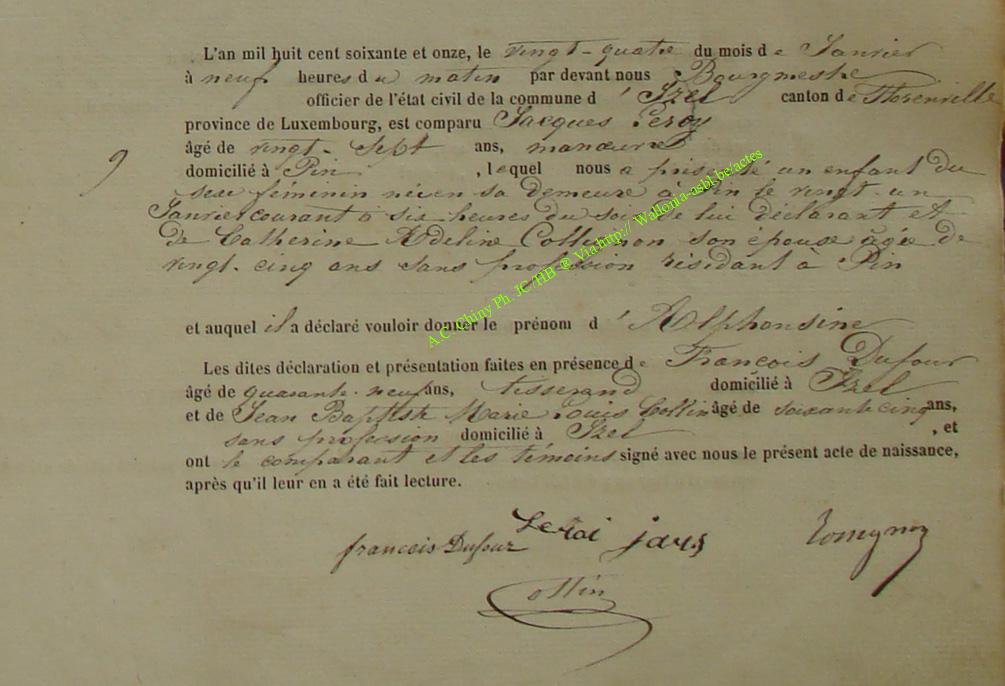 L'an mil huit cent soixante et onze, le vingt-quatre du mois de Janvier
à neuf heures du matin par devant nous Bourgmestre
officier de l'état civil de la commune d'Izel canton de Florenville
province de Luxembourg, est comparu Jacques Leroy
âgé de vingt-sept ans, manœuvre
9 domicilié à Pin, lequel nous a présenté un enfant du
sexe féminin né en sa demeure à Pin le vingt un
Janvier courant à six heures du soir de lui déclarant et
de Catherine Adeline son épouse âgée de
vingt-cinq ans sans profession résidant à Pin
et auquel il a déclaré vouloir donner le prénom d'Alphonsine
Les dites déclaration et présentation faites en présence de François Dufour
âgé de quarante-neuf ans, tisserand domicilié à Izel
et de Jean Baptiste Marie Louis Collin âgé de soixante cinq ans,
sans profession domicilié à Izel, et
ont le comparant et les témoins signé avec nous le présent acte de naissance,
après qu'il leur en a été fait lecture.
francois Dufour Leroi
Collin
A.C. Chiny Ph. JC/HB ® Via http://Wallonia-asbl.be/actes